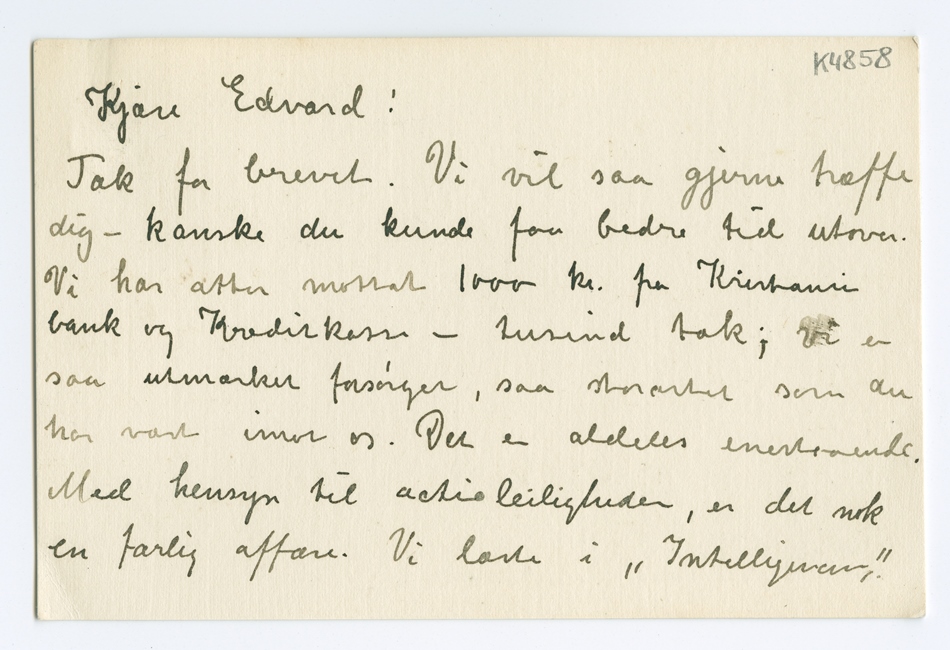 K4858
Kjære Edvard!
Tak for brevet. Vi vil saa gjerne træffe
dig – kanske du kunde faa bedre tid utover.
Vi har atter mottat 1000 kr. fra Kristiania
bank og Kreditkasse – tusind tak; vi er
saa utmærket forsørget, saa storartet som du
har været imot os. Det er aldeles enestaaende.
Med hensyn til actieleiligheden, er det nok
en farlig affære. Vi læste i „Intelligensen,"